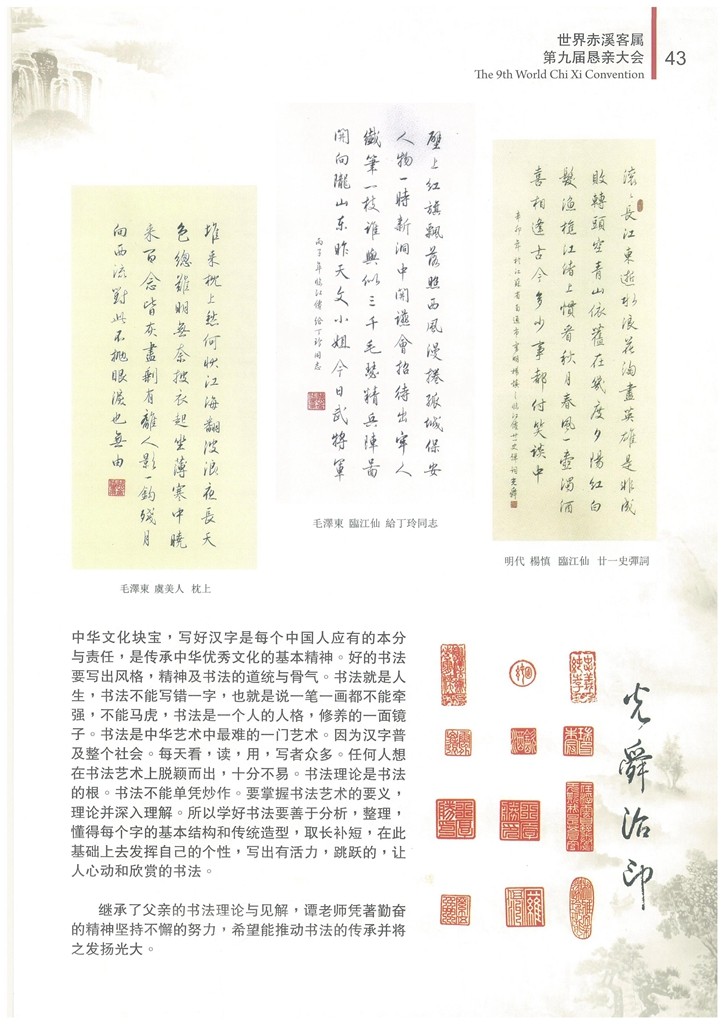 世界赤溪客属
第九届恳亲大会
The 9th World Chi Xi Convention
43
滾〻長江東逝水浪花淘盡英雄是非成
敗轉頭空青山依舊在幾度夕陽紅白
髮漁樵江渚上慣看秋月春風一壺濁酒
喜相逢古今多少事都付笑談中
辛卯年於江蘇省南通市書明楊慎之臨江僊廿一史彈詞光舜
明代 楊慎 臨江仙 廿一史彈詞
壁上紅旗飄落照西風漫捲孤城保安
人物一時新洞中開讌會招待出牢人
纖筆一枝誰與似三千毛瑟精兵陣圖
開向隴山東昨天文小姐今日武將軍
丙子年臨江僊給丁玲同志
毛澤東 臨江仙 給丁玲同志
堆來枕上愁何狀江海翻波浪夜長天
色總難明無奈披衣起坐薄寒中曉
來百念皆灰盡剩有離人影一鈎殘月
向西流對此不拋眼淚也無由
毛澤東 虞美人 枕上
中华文化块宝，写好汉字是每个中国人应有的本分
与责任，是传承中华优秀文化的基本精神。好的书法
要写出风格，精神及书法的道统与骨气。书法就是人
生，书法不能写错一字，也就是说一笔一画都不能牵
强，不能马虎，书法是一个人的人格，修养的一面镜
子。书法是中华艺术中最难的一门艺术。因为汉字普
及整个社会。每天看，读，用，写者众多。任何人想
在书法艺术上脱颖而出，十分不易。书法理论是书法
的根。书法不能单凭炒作。要掌握书法艺术的要义，
理论并深入理解。所以学好书法要善于分析，整理，
懂得每个字的基本结构和传统造型，取长补短，在此
基础上去发挥自己的个性，写出有活力，跳跃的，让
人心动和欣赏的书法。
继承了父亲的书法理论与见解，谭老师凭著勤奋
的精神坚持不懈的努力，希望能推动书法的传承并将
之发扬光大。
光舜治印